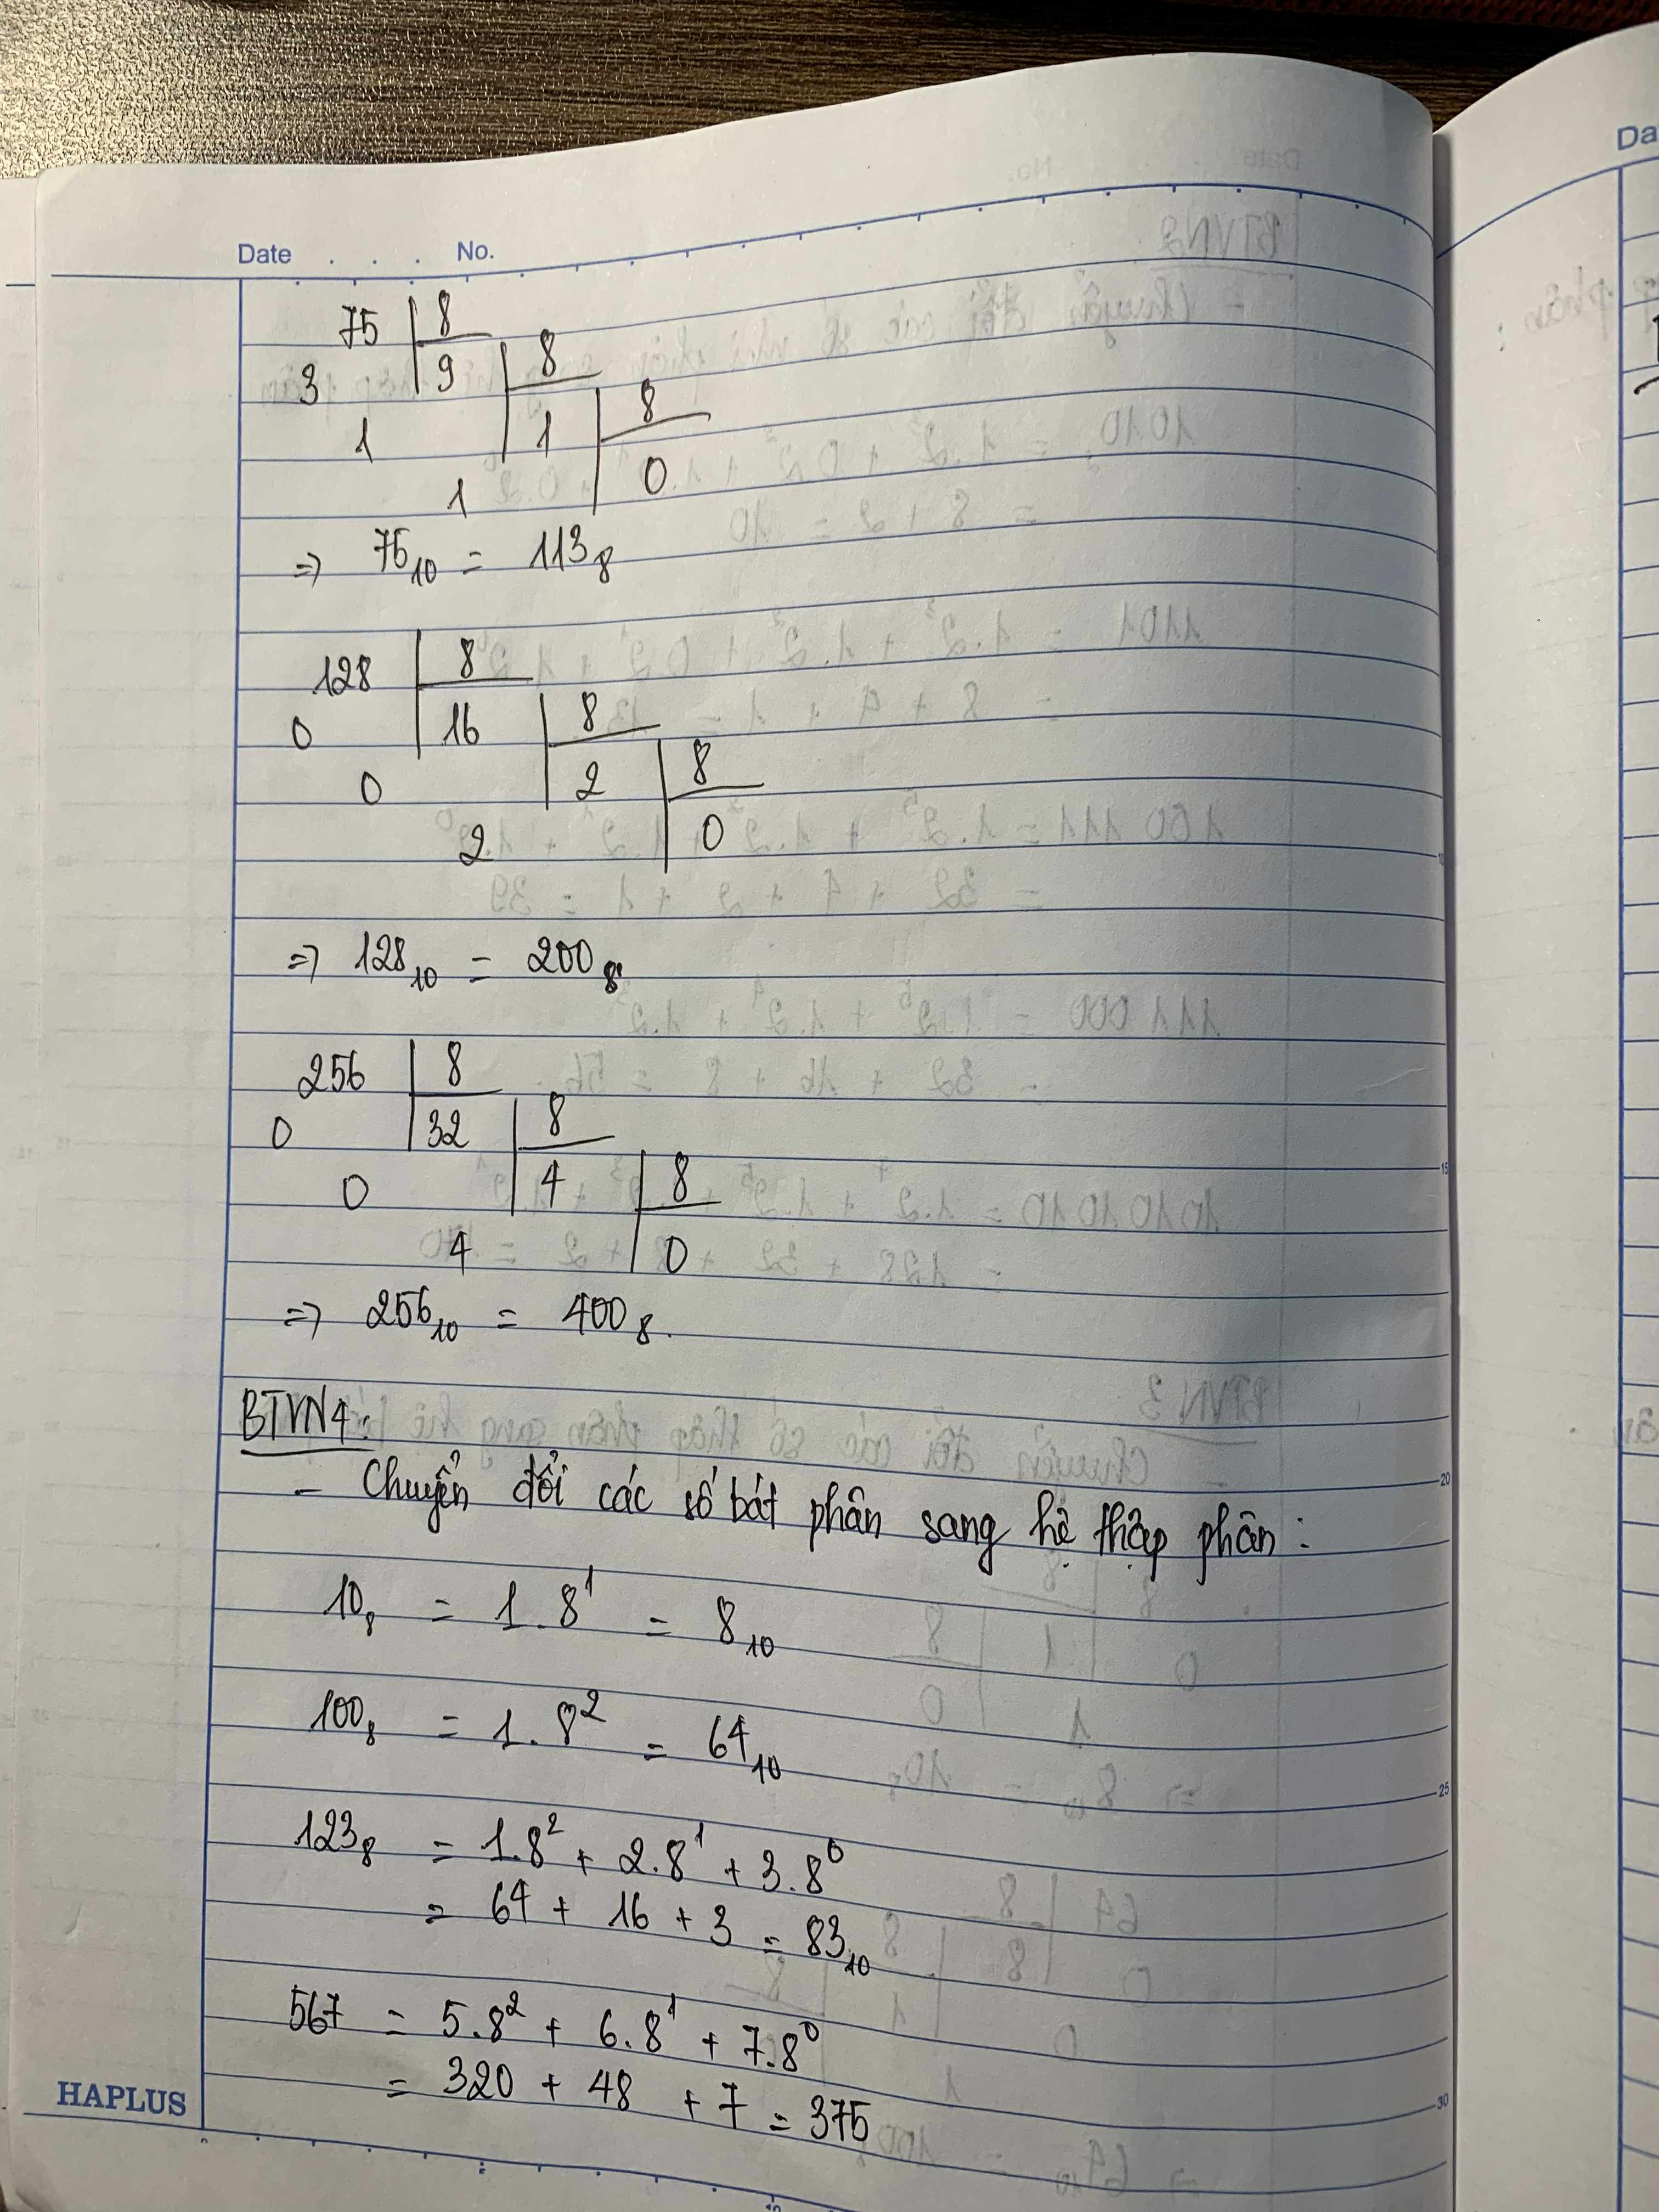 Date . . . No.
75 8
3 9 8
1 1 8
1 0
=> 75₁₀ = 113₈
128 8
0 16 8
0 2 8
2 0
=> 128₁₀ = 200₈
256 8
0 32 8
0 4 8
4 0
=> 256₁₀ = 400₈.
BTVN4:
- Chuyển đổi các số bát phân sang hệ thập phân:
10₈ = 1.8¹ = 8₁₀
100₈ = 1.8² = 64₁₀
123₈ = 1.8² + 2.8¹ + 3.8⁰
= 64 + 16 + 3 = 83₁₀
567 = 5.8² + 6.8¹ + 7.8⁰
= 320 + 48 + 7 = 375
HAPLUS
10
15
20
25
30
Da